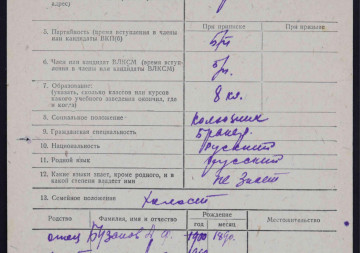 адрес)
При приписке
При призыве
5. Партийность (время вступления в члены
или кандидаты ВКП(б)
Б/п
6. Член или кандидат ВЛКСМ (время вступ-
ления в члены или кандидаты ВЛКСМ)
Б/п.
7. Образование:
(указать, сколько классов или курсов
какого учебного заведения окончил, где
и когда)
8 кл.
8. Социальное положение
Колхозник
9. Гражданская специальность
10. Национальность
Русский
11. Родной язык
Русский
12. Какие языки знает, кроме родного, и в
какой степени владеет ими
не знает
13. Семейное положение
Холост
Родство
Фамилия, имя и отчество
Рождение
год
месяц
Местожительство
отец